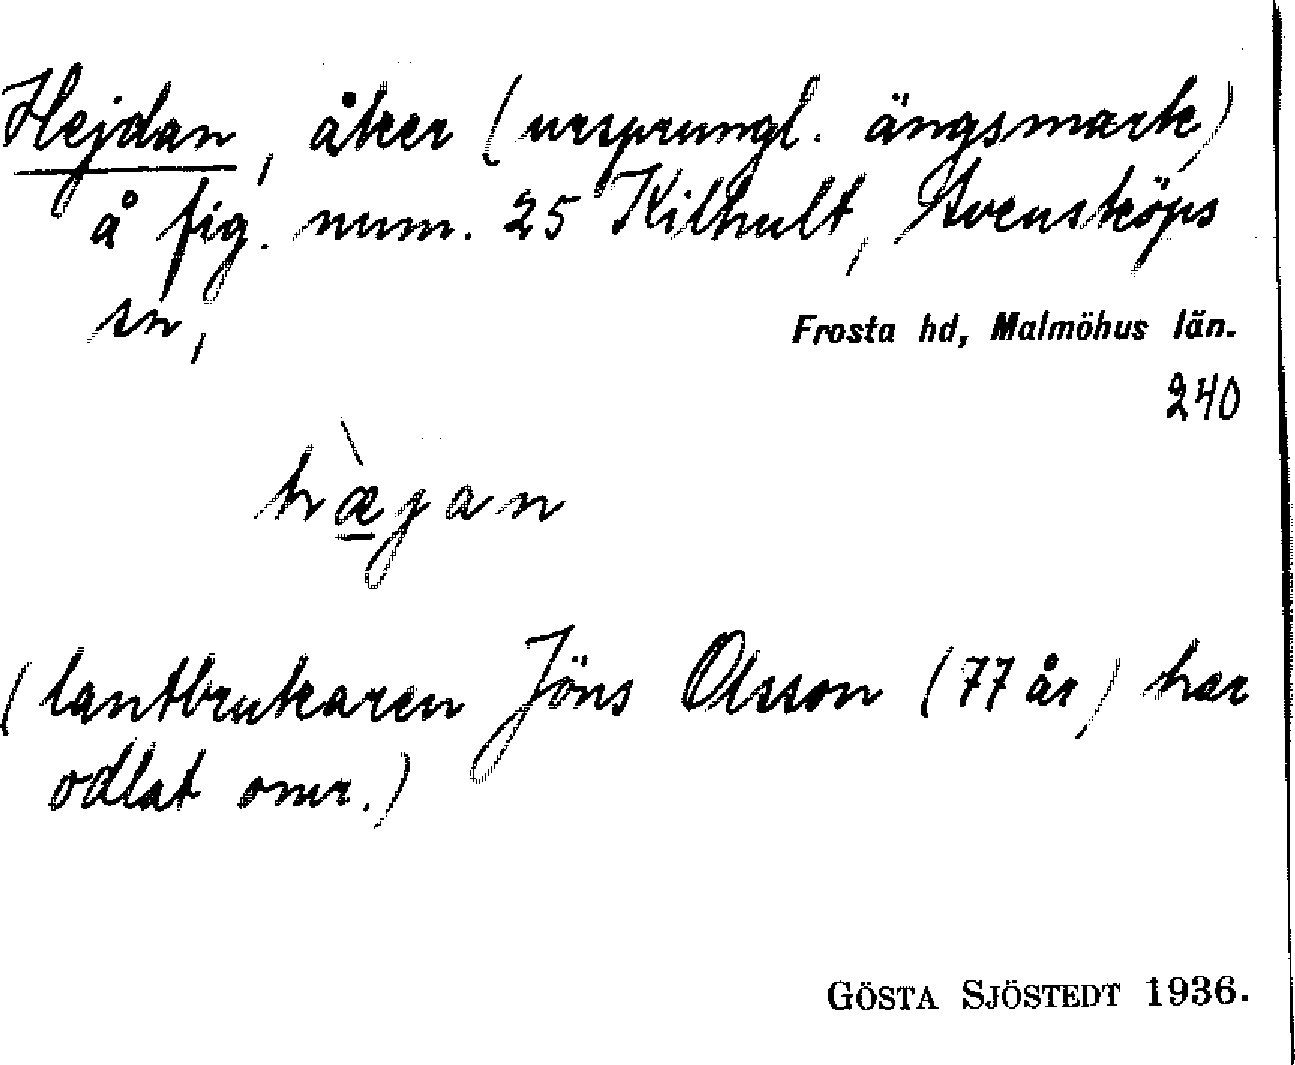 Hejdan, åker (ursprungl. ängsmark)
å fig. num. 25 Kilhult, Svensköps
sn,
Frosta hd, Malmöhus län.
240
hæ̱̀jan
(lantbrukaren Jöns Olsson (77 år) har
odlat omr.)
GÖSTA SJÖSTEDT 1936.